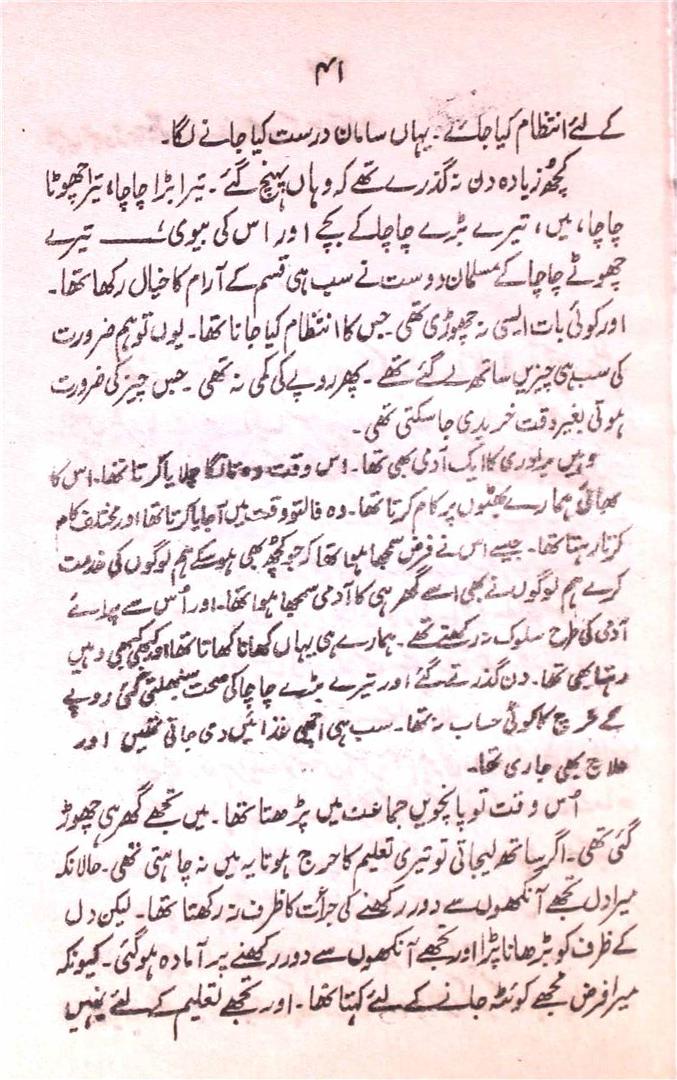 ۴۱
کے لئے انتظام کیا جائے۔ یہاں سامان درست کیا جانے لگا۔
کچھ زیادہ دن نہ گذرے تھے کہ وہاں پہنچ گئے۔ تیرا بڑا چاچا، تیرا چھوٹا
چاچا، میں، تیرے بڑے چاچا کے بچے اور اس کی بیوی ۔ تیرے
چھوٹے چاچا کے مسلمان دوست نے سب ہی قسم کے آرام کا خیال رکھا تھا۔
اور کوئی بات ایسی نہ چھوڑی تھی جس کا انتظام کیا جانا تھا۔ یوں تو ہم ضرورت
کی سب ہی چیزیں ساتھ لے گئے تھے۔ پھر روپے کی کمی نہ تھی۔ جس چیز کی ضرورت
ہوتی بغیر دقت خریدی جا سکتی تھی۔
وہیں برادری کا ایک آدمی بھی تھا۔ اس وقت وہ تانگا چلایا کرتا تھا۔ اس کا
بھائی ہمارے بھٹوں پر کام کرتا تھا۔ وہ فالتو وقت میں آجایا کرتا تھا اور مختلف کام
کرتا رہتا تھا۔ جیسے اس نے فرض سمجھا ہوا تھا کہ جو کچھ بھی ہو سکے ہم لوگوں کی خدمت
کرے ہم لوگوں نے بھی اسے گھر ہی کا آدمی سمجھا ہوا تھا۔ اور اُس سے پرائے
آدمی کی طرح سلوک نہ رکھتے تھے۔ ہمارے ہی یہاں کھانا کھاتا تھا اور کبھی کبھی وہیں
رہتا بھی تھا۔ دن گذرتے گئے اور تیرے بڑے چاچا کی صحت سنبھلتی گئی روپے
کے خرچ کا کوئی حساب نہ تھا۔ سب ہی اچھی غذائیں دی جاتی تھیں اور
علاج بھی جاری تھا۔
اُس وقت تو پانچویں جماعت میں پڑھتا تھا۔ میں تجھے گھر ہی چھوڑ
گئی تھی۔ اگر ساتھ لیجاتی تو تیری تعلیم کا حرج ہوتا یہ میں نہ چاہتی تھی۔ حالانکہ
میرا دل تجھے آنکھوں سے دور رکھنے کی جرأت کا ظرف نہ رکھتا تھا۔ لیکن دل
کے ظرف کو بڑھانا پڑا اور تجھے آنکھوں سے دور رکھنے پر آمادہ ہو گئی۔ کیونکہ
میرا فرض مجھے کوئٹہ جانے کے لئے کہتا تھا۔ اور تجھے تعلیم کے لئے یہیں